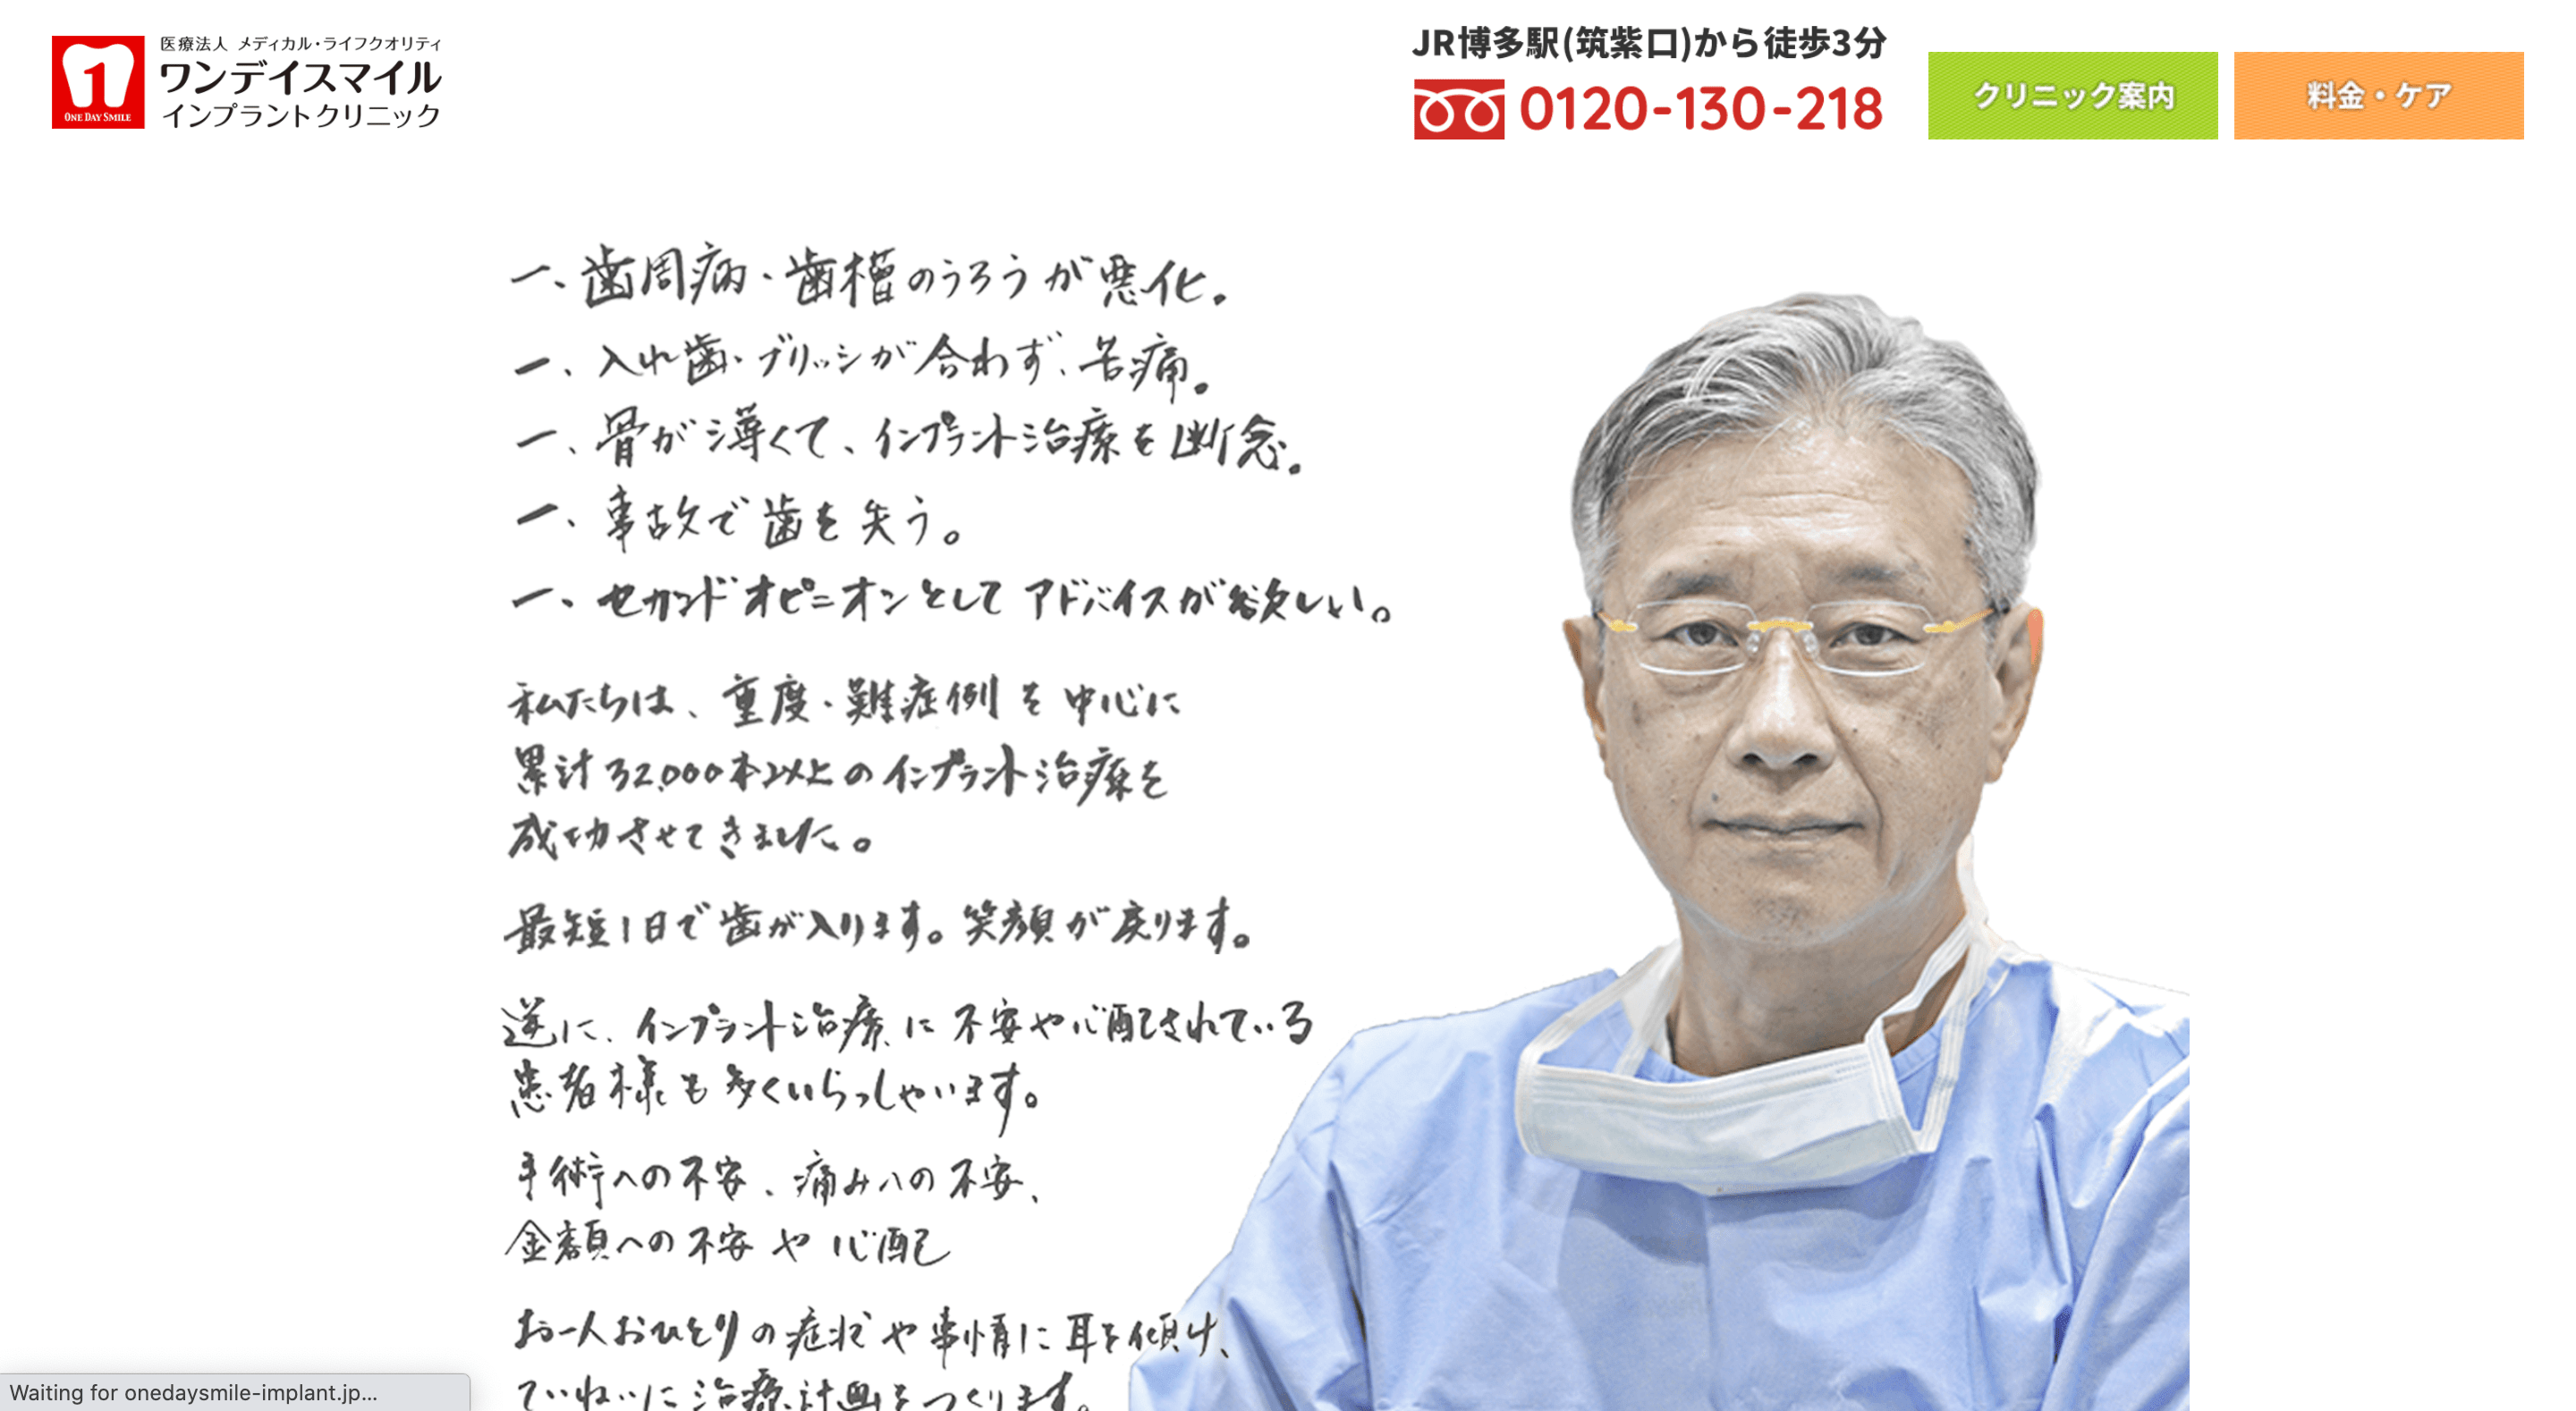 医療法人 メディカル・ライフクオリティ
ワンデイスマイル
インプラントクリニック
1
ONE DAY SMILE
JR博多駅(筑紫口)から徒歩3分
0120-130-218
クリニック案内
料金・ケア
一、歯周病・歯槽のうろうが悪化。
一、入れ歯・ブリッジが合わず、苦痛。
一、骨が薄くて、インプラント治療を断念。
一、事故で歯を失う。
一、セカンドオピニオンとしてアドバイスが欲しい。
私たちは、重度・難症例を中心に
累計32,000本以上のインプラント治療を
成功させてきました。
最短1日で歯が入ります。笑顔が戻ります。
逆に、インプラント治療に不安や心配されている
患者様も多くいらっしゃいます。
手術への不安、痛みへの不安、
金額への不安や心配
お一人おひとりの症状や事情に耳を傾け、
ていねいに治療計画をつくります。
Waiting for onedaysmile-implant.jp...